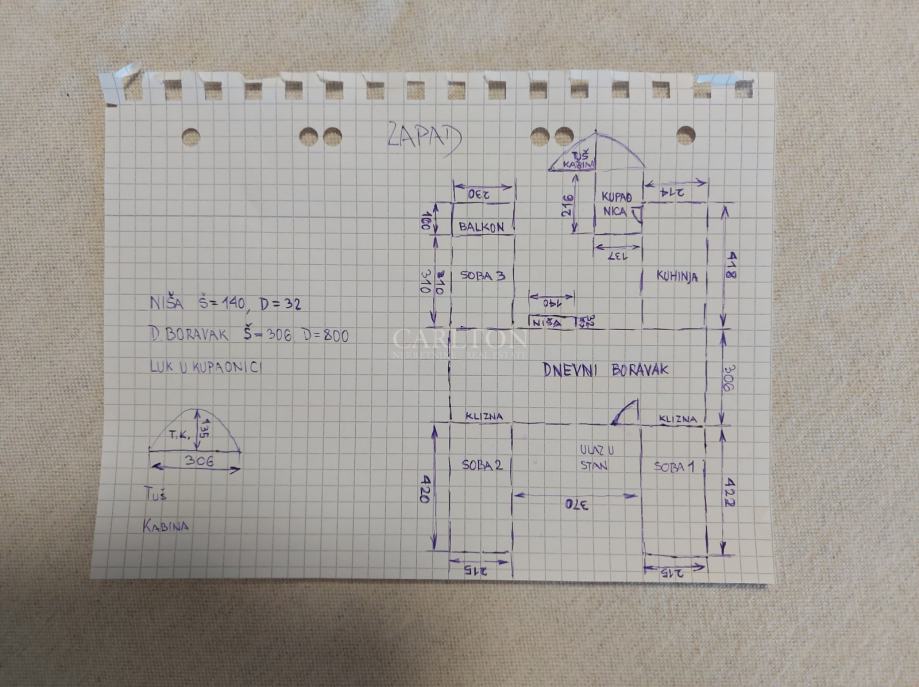 ZAPAD
TUŠ
KABINA
230
216
KUPAO
NICA
214
100
BALKON
137
418
310
310
SOBA 3
KUHINJA
140
NIŠA Š=140, D=32
NIŠA
32
D. BORAVAK Š=306 D=800
CARLTON
LUK U KUPAONICI
DNEVNI BORAVAK
306
KLIZNA
KLIZNA
T.K.
135
306
ULAZ U
STAN
SOBA 2
SOBA 1
420
422
370
TUŠ
KABINA
215
215